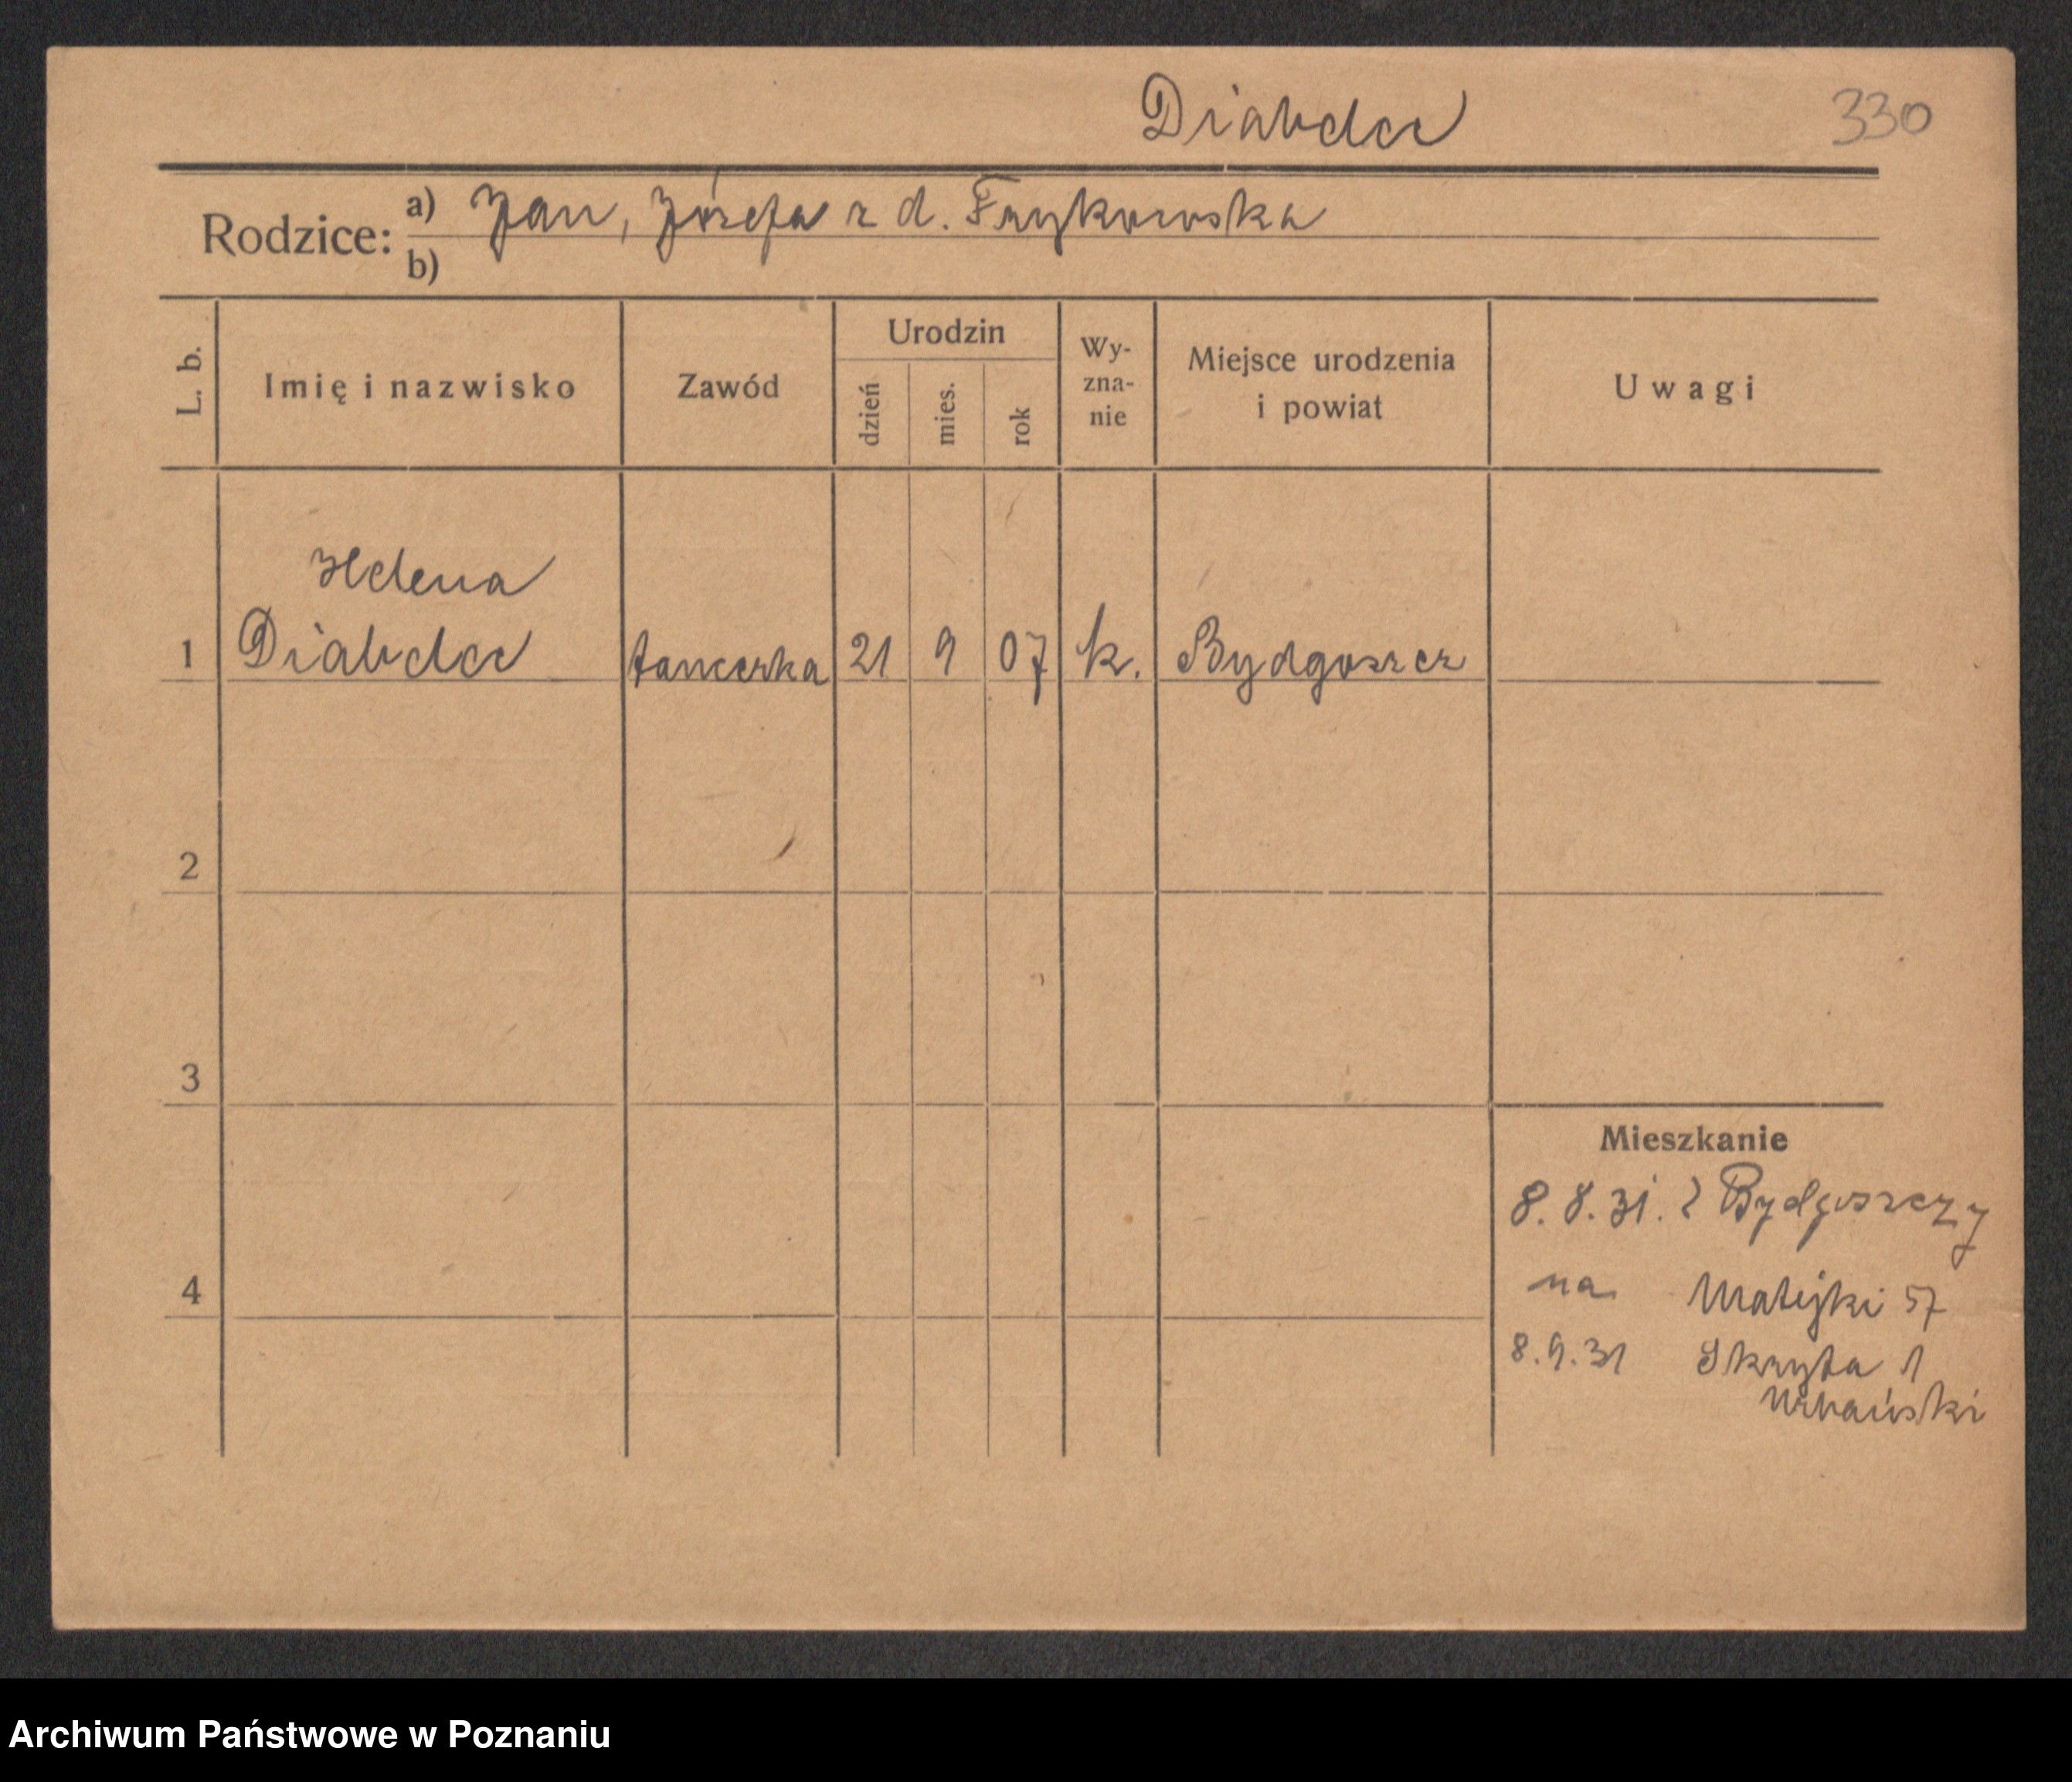 330
Rodzice: a) Jan, Józefa z d. Frykowska
b)
L. b. Imię i nazwisko Zawód Urodzin dzień mies. rok Wy-zna-nie Miejsce urodzenia i powiat Uwagi
Helena
1 tancerka 21 9 07 k. Bydgoszcz
2
3
Mieszkanie
8.8.31. z Bydgoszczy
4 na Matejki 57
8.9.31 Skryta 1
Urbański
Archiwum Państwowe w Poznaniu